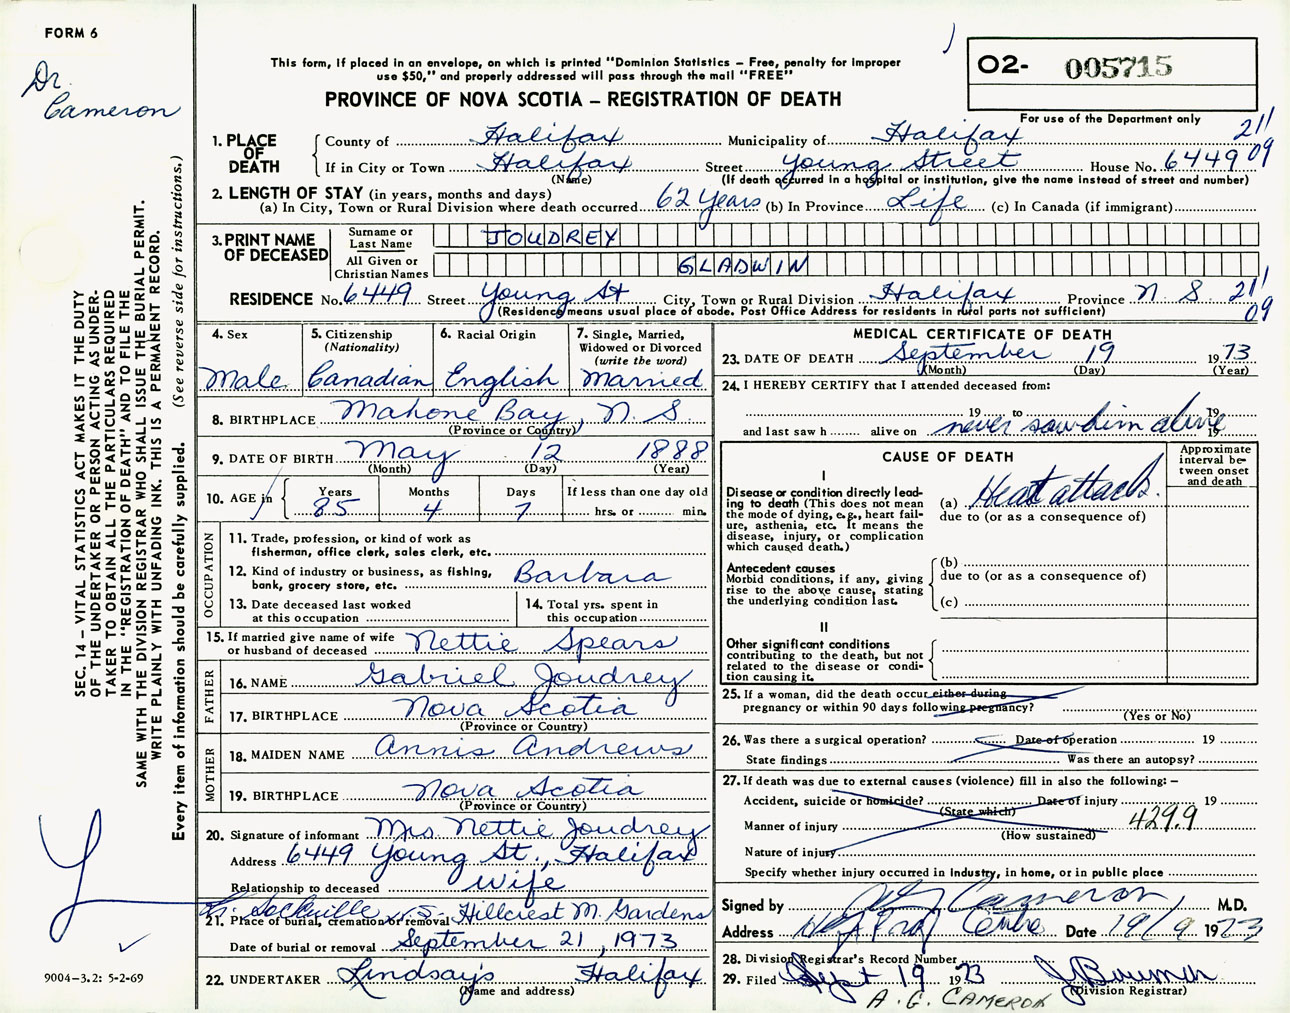 FORM 6
Dr.
Cameron
SEC. 14 – VITAL STATISTICS ACT MAKES IT THE DUTY
OF THE UNDERTAKER OR PERSON ACTING AS UNDER-
TAKER TO OBTAIN ALL THE PARTICULARS REQUIRED
IN THE "REGISTRATION OF DEATH" AND TO FILE THE
SAME WITH THE DIVISION REGISTRAR WHO SHALL ISSUE THE BURIAL PERMIT.
WRITE PLAINLY WITH UNFADING INK. THIS IS A PERMANENT RECORD.
Every item of information should be carefully supplied. (See reverse side for instructions.)
9004-3.2: 5-2-69
This form, if placed in an envelope, on which is printed "Dominion Statistics – Free, penalty for improper
use $50," and properly addressed will pass through the mail "FREE"
PROVINCE OF NOVA SCOTIA – REGISTRATION OF DEATH
02- 005715
For use of the Department only
211
09
1. PLACE OF DEATH
County of Halifax Municipality of Halifax
If in City or Town Halifax Street Young Street House No. 6449
(Name) (If death occurred in a hospital or institution, give the name instead of street and number)
2. LENGTH OF STAY (in years, months and days)
(a) In City, Town or Rural Division where death occurred 62 Years (b) In Province Life (c) In Canada (if immigrant)
3. PRINT NAME OF DECEASED
Surname or Last Name JOUDREY
All Given or Christian Names GLADWIN
RESIDENCE No. 6449 Street Young St City, Town or Rural Division Halifax Province N S 211
(Residence means usual place of abode. Post Office Address for residents in rural parts not sufficient) 09
4. Sex
Male
5. Citizenship
(Nationality)
Canadian
6. Racial Origin
English
7. Single, Married,
Widowed or Divorced
(write the word)
Married
8. BIRTHPLACE Mahone Bay, N. S
(Province or Country)
9. DATE OF BIRTH May 12 1888
(Month) (Day) (Year)
10. AGE in
Years Months Days If less than one day old
85 4 7 hrs. or min.
OCCUPATION
11. Trade, profession, or kind of work as
fisherman, office clerk, sales clerk, etc.
12. Kind of industry or business, as fishing,
bank, grocery store, etc. Barbara
13. Date deceased last worked
at this occupation
14. Total yrs. spent in
this occupation
15. If married give name of wife
or husband of deceased Nettie Spears
FATHER
16. NAME Gabriel Joudrey
17. BIRTHPLACE Nova Scotia
(Province or Country)
MOTHER
18. MAIDEN NAME Annis Andrews
19. BIRTHPLACE Nova Scotia
(Province or Country)
20. Signature of informant Mrs Nettie Joudrey
Address 6449 Young St., Halifax
Relationship to deceased wife
Sackville N.S.
21. Place of burial, cremation or removal Hillcrest M. Gardens
Date of burial or removal September 21, 1973
22. UNDERTAKER Lindsay's Halifax
(Name and address)
MEDICAL CERTIFICATE OF DEATH
23. DATE OF DEATH September 19 1973
(Month) (Day) (Year)
24. I HEREBY CERTIFY that I attended deceased from:
19 to 19
and last saw h alive on never saw him alive 19
CAUSE OF DEATH
Approximate
interval be-
tween onset
and death
I
Disease or condition directly lead-
ing to death (This does not mean
the mode of dying, e.g., heart fail-
ure, asthenia, etc. It means the
disease, injury, or complication
which caused death.)
(a) Heart attack.
due to (or as a consequence of)
Antecedent causes
Morbid conditions, if any, giving
rise to the above cause, stating
the underlying condition last.
(b)
due to (or as a consequence of)
(c)
II
Other significant conditions
contributing to the death, but not
related to the disease or condi-
tion causing it.
25. If a woman, did the death occur either during
pregnancy or within 90 days following pregnancy?
(Yes or No)
26. Was there a surgical operation? Date of operation 19
State findings Was there an autopsy?
27. If death was due to external causes (violence) fill in also the following:–
Accident, suicide or homicide? Date of injury 19
(State which)
Manner of injury 429.9
(How sustained)
Nature of injury
Specify whether injury occurred in industry, in home, or in public place
Signed by Cameron M.D.
Address Centre Date 19/9 1973
28. Division Registrar's Record Number
29. Filed Sept 19 1973 J Bowman
(Division Registrar)
A. G. CAMERON